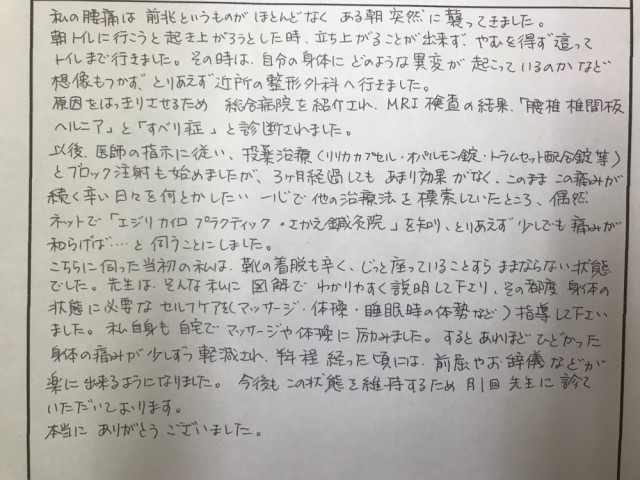 私の腰痛は 前兆というものが ほとんどなく ある朝 突然に 襲ってきました。
朝トイレに行こうと起き上がろうとした時、立ち上がることが出来ず、やむを得ず這って
トイレまで行きました。その時は、自分の身体に どのような異変が 起こっているのか など
想像もつかず、とりあえず近所の整形外科へ行きました。
原因をはっきりさせるため 総合病院を紹介され、MRI検査の結果、「腰椎椎間板
ヘルニア」と「すべり症」と診断されました。
以後、医師の指示に従い、投薬治療(リリカカプセル・オパルモン錠・トラムセット配合錠等)
とブロック注射も始めましたが、3ヶ月経過しても あまり効果がなく、このまま この痛みが
続く辛い日々を何とかしたい 一心で他の治療法を模索していたところ、偶然
ネットで「エジリカイロプラクティック・さかえ鍼灸院」を知り、とりあえず少しでも痛みが
和らげば‥‥と伺うことにしました。
こちらに伺った当初の私は、靴の着脱も辛く、じっと座っていることすら ままならない状態
でした。先生は、そんな私に 図解で わかりやすく説明して下さり、その都度 身体の
状態に必要な セルフケア(マッサージ・体操・睡眠時の体勢など)指導して下さい
ました。私自身も 自宅で マッサージや体操に励みました。するとあれほどひどかった
身体の痛みが少しずつ軽減され、半年程 経った頃には、前屈やお辞儀などが
楽に出来るようになりました。今後も この状態を維持するため 月1回 先生に診て
いただいております。
本当に ありがとうございました。